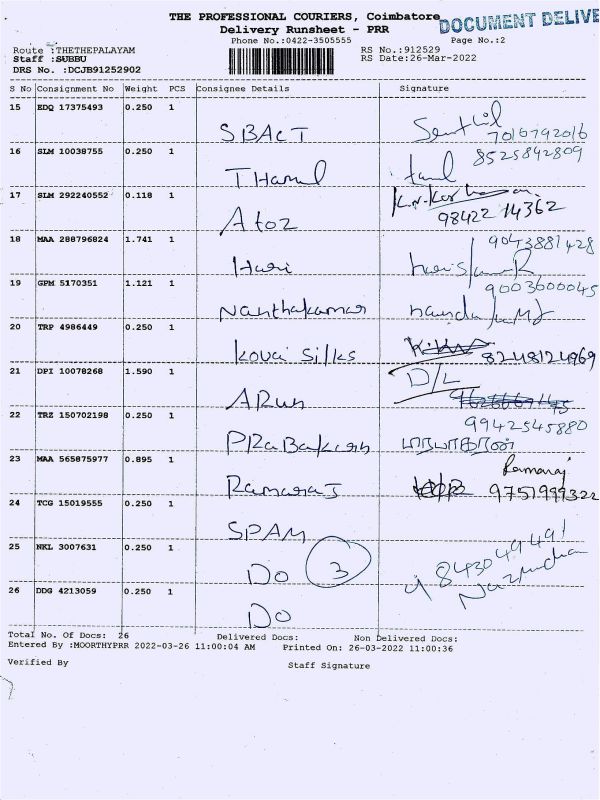 THE PROFESSIONAL COURIERS, Coimbatore
DOCUMENT DELIVE
Delivery Runsheet - PRR
Phone No.:0422-3505555
Page No.:2
Route :THETHEPALAYAM
RS No.:912529
Staff :SUBBU
RS Date:26-Mar-2022
DRS No. :DCJB91252902
S No Consignment No Weight PCS Consignee Details Signature
15 EDQ 17375493 0.250 1
SBACT Senthil
7016792016
16 SLM 10038755 0.250 1
8525842809
THamil tamil
17 SLM 292240552 0.118 1
A toz 98422 14362
18 MAA 288796824 1.741 1
9043881428
Hari
19 GPM 5170351 1.121 1
9003600045
Nanthakumar
20 TRP 4986449 0.250 1
Kovai Silks 8248124969
21 DPI 10078268 1.590 1
D/L
ARun
22 TRZ 150702198 0.250 1
9942545880
PRaBakaran
23 MAA 565875977 0.895 1
Ramaraj
RamaraJ 9751999322
24 TCG 15019555 0.250 1
SPAM
25 NKL 3007631 0.250 1
8430494491
Do 3
26 DDG 4213059 0.250 1
Do
Total No. Of Docs: 26 Delivered Docs: Non Delivered Docs:
Entered By :MOORTHYPRR 2022-03-26 11:00:04 AM Printed On: 26-03-2022 11:00:36
Verified By Staff Signature